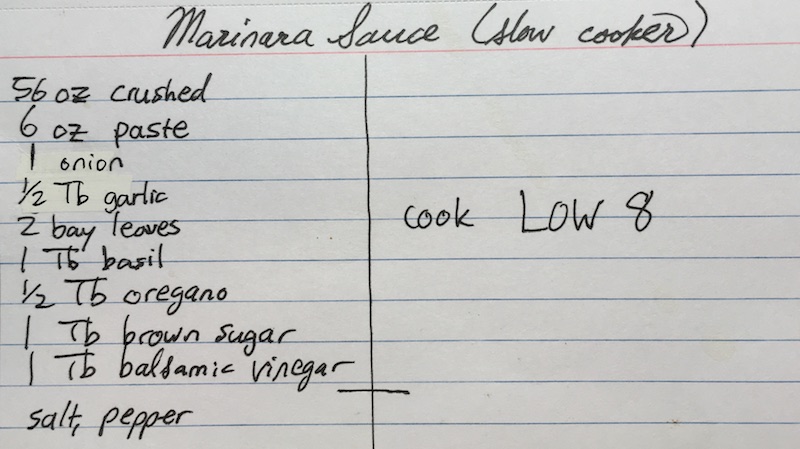 Marinara Sauce (slow cooker)
56 oz crushed
6 oz paste
1 onion
1/2 Tb garlic
2 bay leaves
1 Tb basil
1/2 Tb oregano
1 Tb brown sugar
1 Tb balsamic vinegar
salt, pepper
cook LOW 8